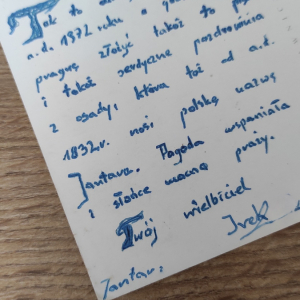 Tak to
a.d. 1372 roku o
pragnę złożyć także to
i także serdeczne pozdrowienia
z osady, która też od a.d.
1832.r. nosi polską nazwę
Jantar. Pogoda wspaniała
i słońce mocno praży.
Twój wielbiciel
Irek
Jantar,